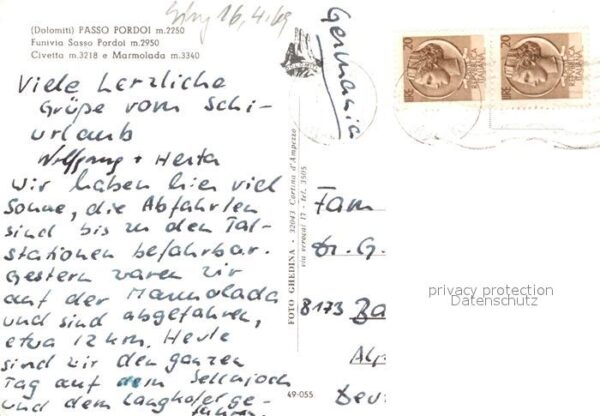 (Dolomiti) PASSO PORDOI m.2250
Funivia Sasso Pordoi m.2950
Civetta m.3218 e Marmolada m.3340
16.4.69
Viele herzliche
Grüße vom Schi-
urlaub
Wolfgang + Herta
Wir haben hier viel
Sonne, die Abfahrten
sind bis zu den Tal-
stationen befahrbar.
Gestern waren wir
auf der Marmolada
und sind abgefahren,
etwa 12 km. Heute
sind wir den ganzen
Tag auf dem Sellajoch
und dem Langkofel ge-
fahren.
FOTO GHEDINA • 32043 Cortina d'Ampezzo
via verocai 17 - tel. 3505
49-055
Germania
20
LIRE
REPUBBLICA
ITALIANA
20
LIRE
REPUBBLICA
ITALIANA
Fam
Dr. G.
8173 Ba
Alp
Deu
privacy protection
Datenschutz